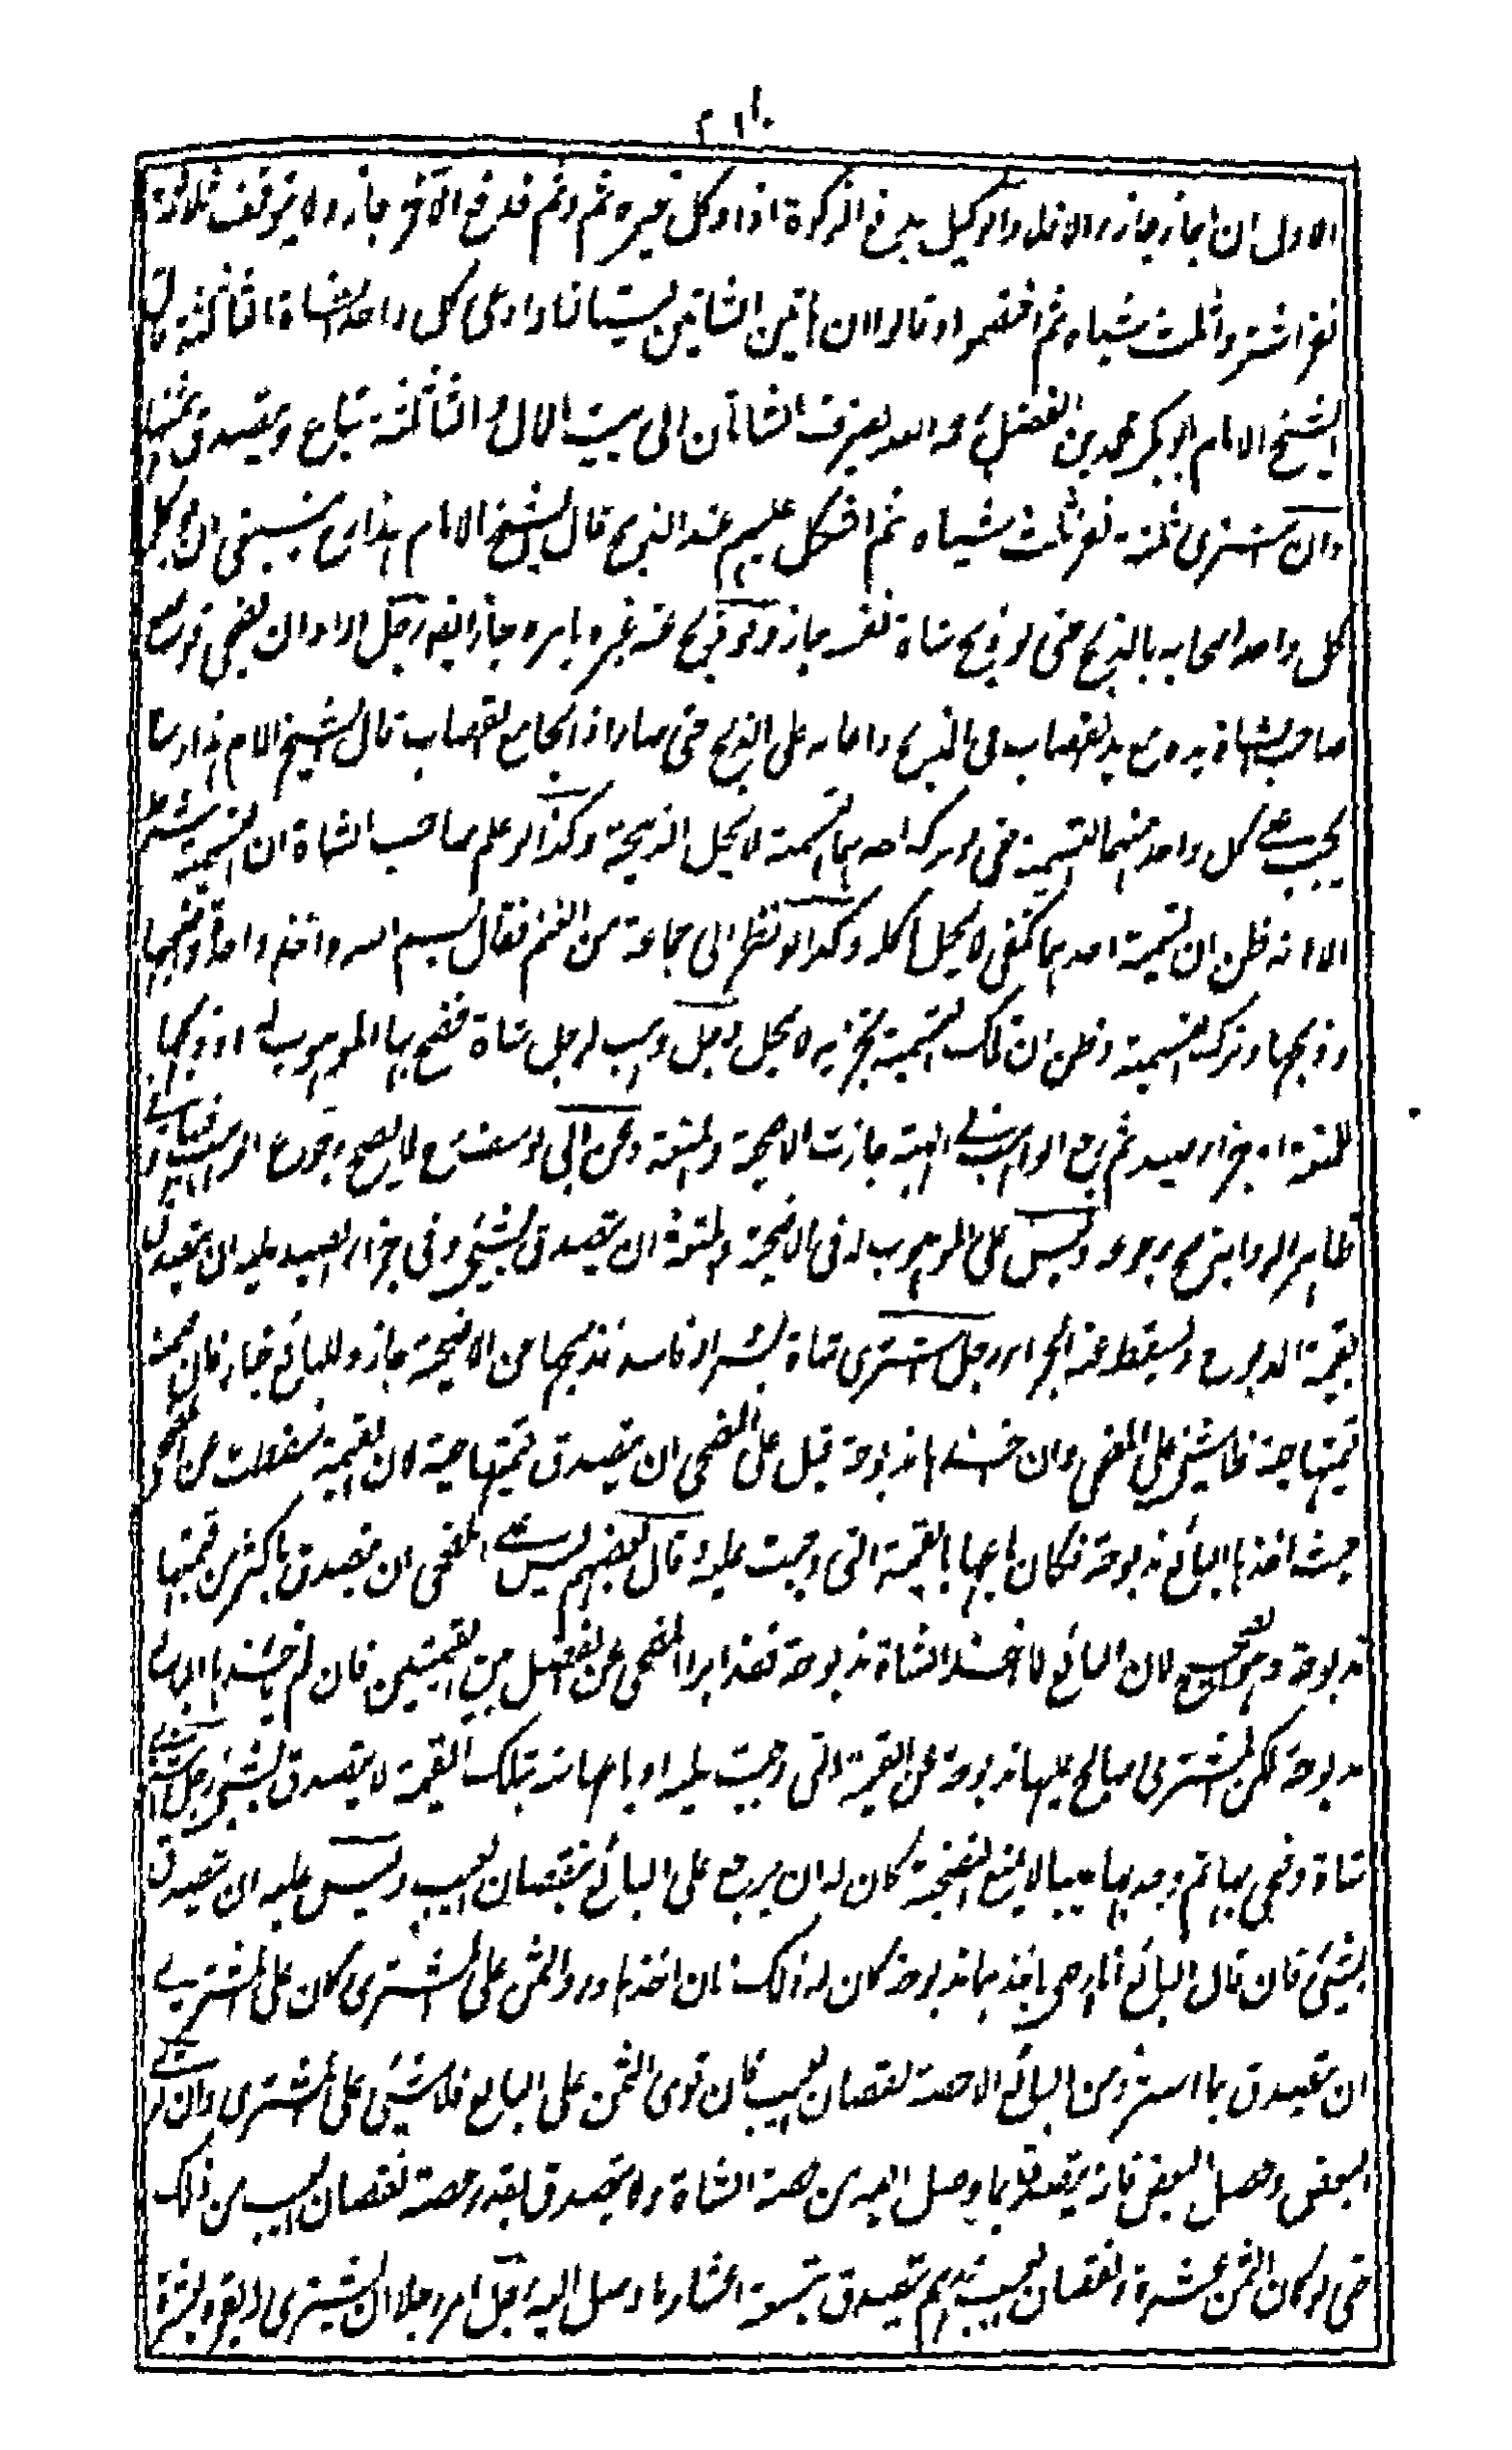 الاول ان اجاز جاز والافلا والوكيل بدفع الزكوة اذا وكل غيره ثم وثم فدفع الآخر جاز ولا يتوقف ثلاثة
نفر اشتروا ثلث شياه ثم اختصموا وقالوا لان هاتين الشاتين ليستا لنا وادعى كل واحد الشاة الثالثة قال
الشيخ الامام ابو بكر محمد بن الفضل رحمه الله يصرف الشاتان الى بيت المال والثالثة تباع ويتصدق بثمنها
وان اشترى ثلثة نفر ثلث شياه ثم اشكل عليهم عند الذبح قال الشيخ الامام هذا رح ينبغي ان يوكل
كل واحد اصحابه بالذبح حتى لو ذبح شاة نفسه جاز ولو ذبح عنه غيره بامره جاز ايضا رجل اراد ان يضحي فوضع
صاحب الشاة يده مع يد القصاب في الذبح واعانه على الذبح حتى صار ذابحا مع القصاب قال الشيخ الامام هذا رح
يجب على كل واحد منهما التسمية حتى لو ترك احدهما التسمية لا يحل الذبيحة وكذا لو علم صاحب الشاة ان التسمية شرط
الا انه ظن ان تسمية احدهما تكفي لا يحل اكله وكذا لو نظر الى جماعة من الغنم فقال بسم الله واخذ واحدة واضجعها
وذبحها وترك التسمية وظن ان تلك التسمية تجزيه لا يحل رجل وهب لرجل شاة فضحى بها الموهوب له او ذبحها
للمتعة او جزاء صيد ثم رجع الواهب في الهبة جازت الاضحية والمتعة وعن ابي يوسف رح لا يصح رجوع الواهب وفي
ظاهر الرواية يصح رجوعه وليس على الموهوب له في الاضحية والمتعة ان يتصدق بشيئ وفي جزاء الصيد عليه ان يتصدق
بقيمة المذبوح ويسقط عنه الجزاء رجل اشترى شاة بشراء فاسد فذبحها عن الاضحية جاز وللبائع خيار فان ضمنه
قيمتها حية فلا شيئ على المضحي وان اخذها مذبوحة قيل على المضحي ان يتصدق بقيمتها حية لان القيمة سقطت عن المضحي
حيث اخذها البائع مذبوحة فكان باعها بالقيمة التي وجبت عليه وقال بعضهم ليس على المضحي ان يتصدق باكثر من قيمتها
مذبوحة وهو الصحيح لان البائع لما اخذ الشاة مذبوحة فقد ابرأ المضحي عن الفضل بين القيمتين فان لم ياخذها البائع
مذبوحة لكن المشتري صالح عليها مذبوحة على القيمة التي وجبت عليه او باعها منه بتلك القيمة لا يتصدق بشيئ رجل اشترى
شاة وضحى بها ثم وجد بها عيبا لا يمنع التضحية كان له ان يرجع على البائع بنقصان العيب وليس عليه ان يتصدق
بشيئ فان قال البائع انا ارضى باخذها مذبوحة كان له ذلك فان اخذها ورد الثمن على المشتري كان على المشتري
ان يتصدق بما استرد من البائع الا حصة نقصان العيب فان توى الثمن على البائع فلا شيئ على المشتري وان توى
البعض وحصل البعض فانه يتصدق بما وصل اليه من حصة الشاة ولا يتصدق بقدر حصة نقصان العيب من ذلك
حتى لو كان الثمن عشرة ونقصان العيب درهم يتصدق بتسعة اعشار ما وصل اليه رجل امر رجلا ان يشتري له بقرة بعشرة